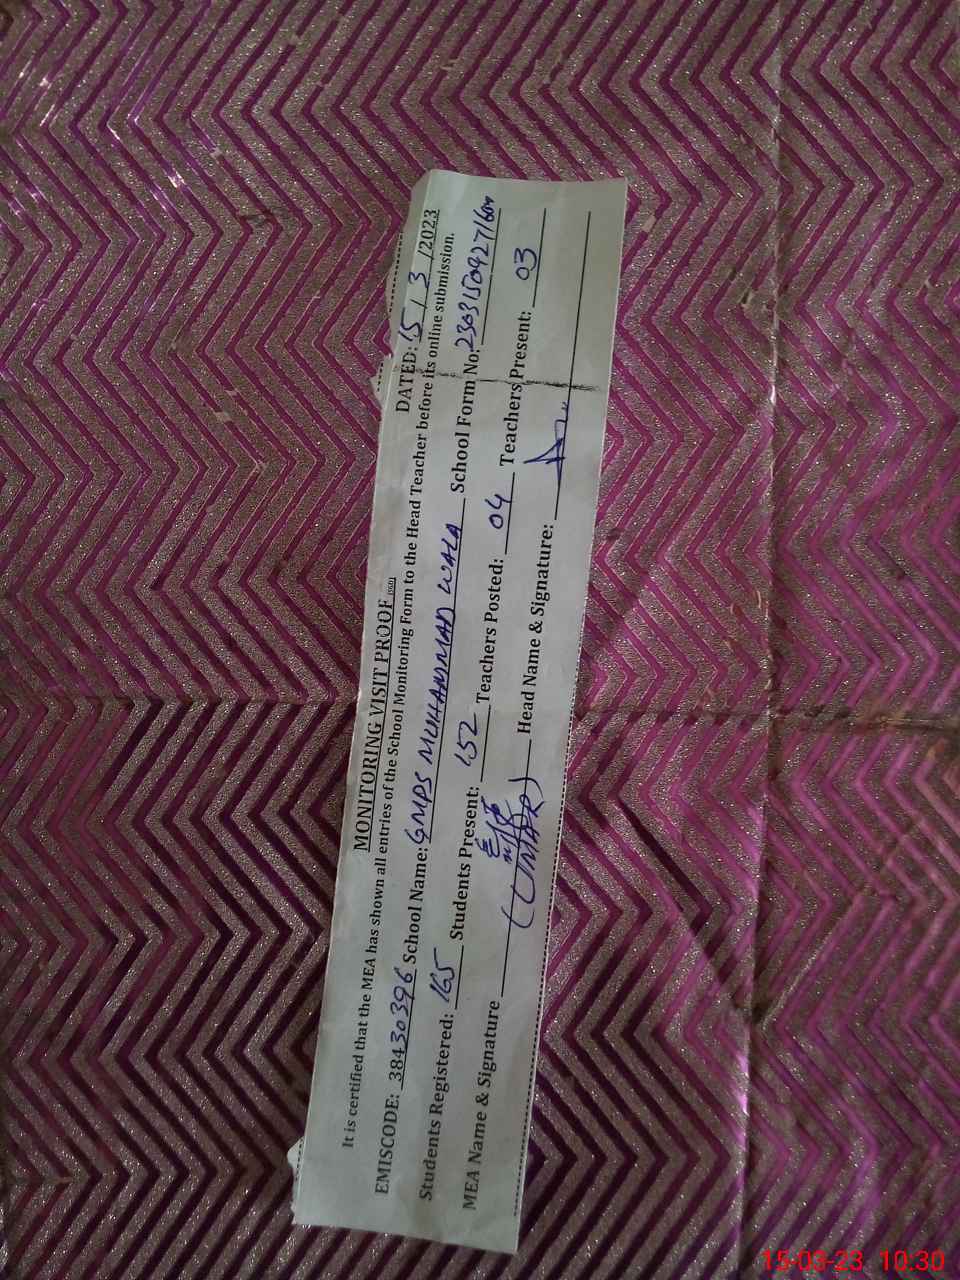 MONITORING VISIT PROOF DATED: 15 / 3 /2023
It is certified that the MEA has shown all entries of the School Monitoring Form to the Head Teacher before its online submission.
EMISCODE: 38430396 School Name: GMPS MUHAMMAD WALA School Form No:
Students Registered: 165 Students Present: 152 Teachers Posted: 04 Teachers Present: 03
MEA Name & Signature (UMAR) Head Name & Signature:
15-03-23 10:30